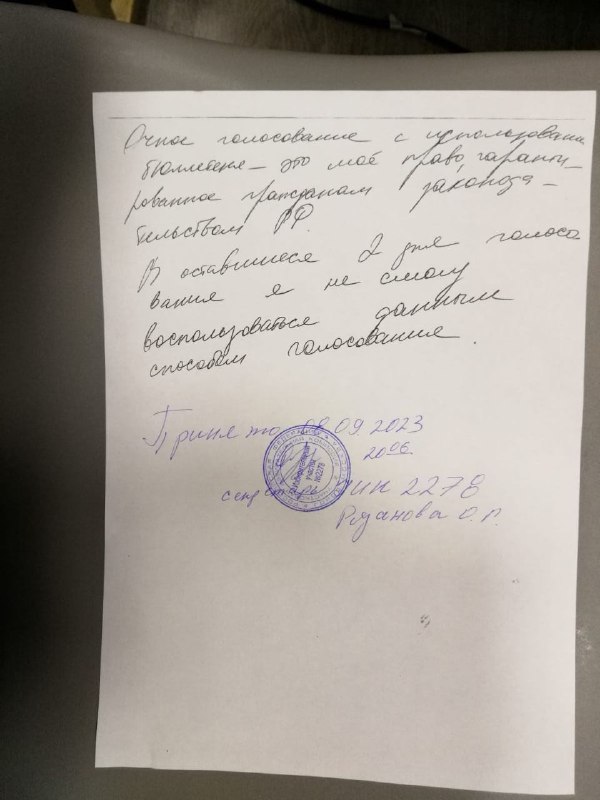 Очное голосование с использовани
бюллетеня – это моё право, гаранти–
рованное гражданам законода–
тельством РФ.
В оставшиеся 2 дня голосо
вания я не смогу
воспользоваться данным
способом голосования.
Принято 08.09.2023
20 06
УИК 2278
№2278